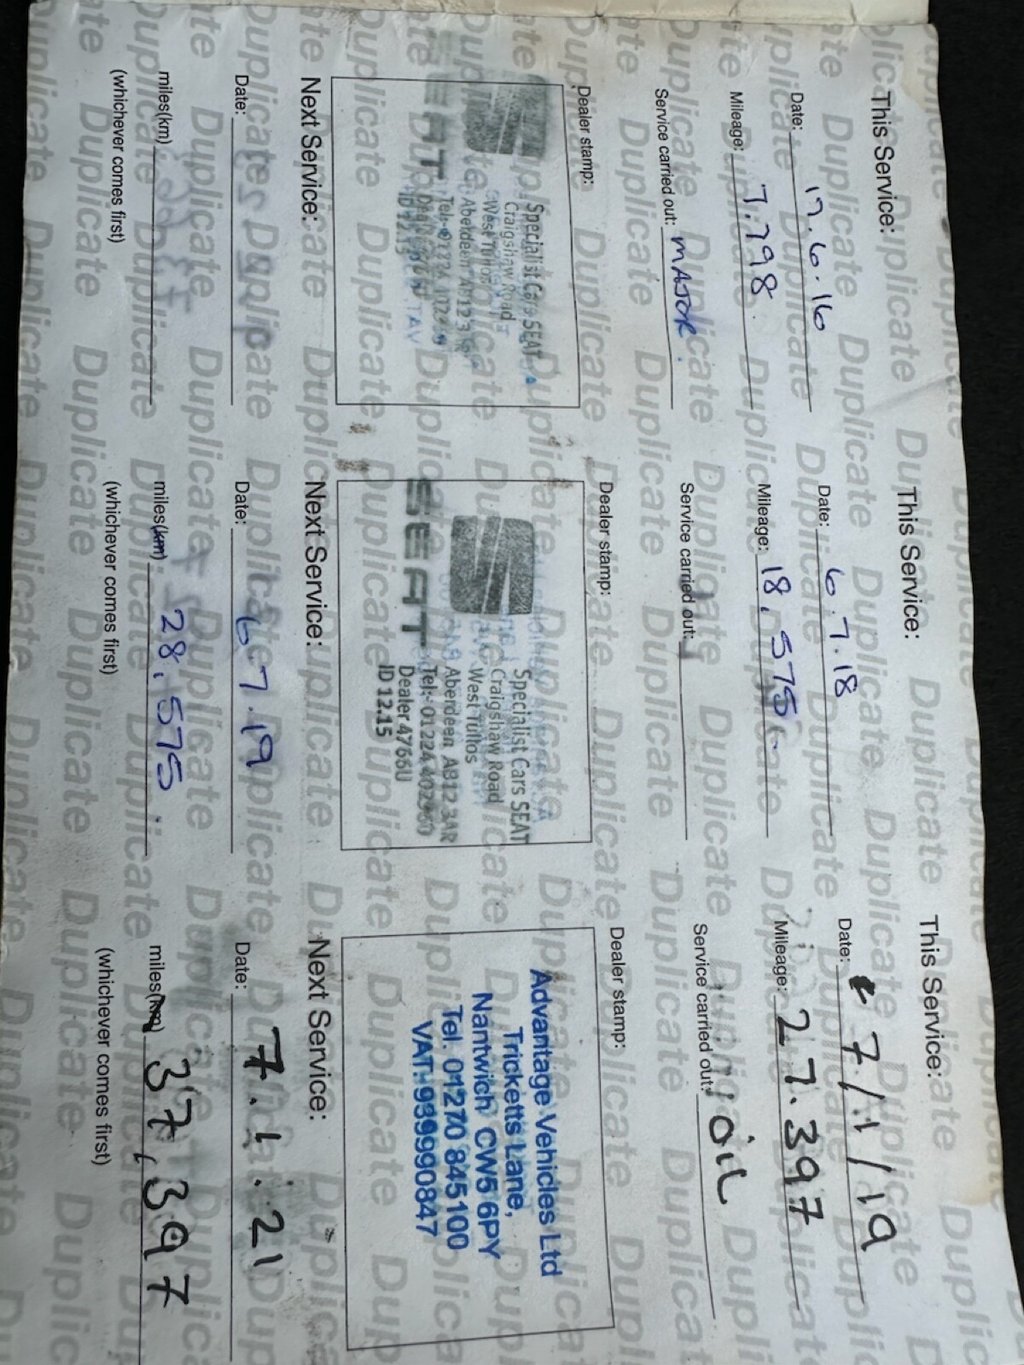 This Service:
Date: 17.6.16
Mileage: 7.798
Service carried out: MAJOR.
Dealer stamp:
Specialist Cars SEAT
Craigshaw Road
West Tullos
Aberdeen AB12 3AR
SEAT
ID 12.15
Next Service:
Date:
miles(km)
(whichever comes first)
This Service:
Date: 6.7.18
Mileage: 18,575
Service carried out:
Dealer stamp:
Specialist Cars SEAT
Craigshaw Road
West Tullos
Aberdeen AB12 3AR
Tel:- 01224 402960
Dealer 4766U
ID 12.15
SEAT
Next Service:
Date: 6 7.19
miles(km) 28,575
(whichever comes first)
This Service:
Date: 7/1/19
Mileage: 27.397
Service carried out: OIL
Dealer stamp:
Advantage Vehicles Ltd
Tricketts Lane,
Nantwich CW5 6PY
Tel. 01270 845100
VAT-939990847
Next Service:
Date: 7.1.21
miles(km) 37,397
(whichever comes first)
Duplicate Duplicate Duplicate